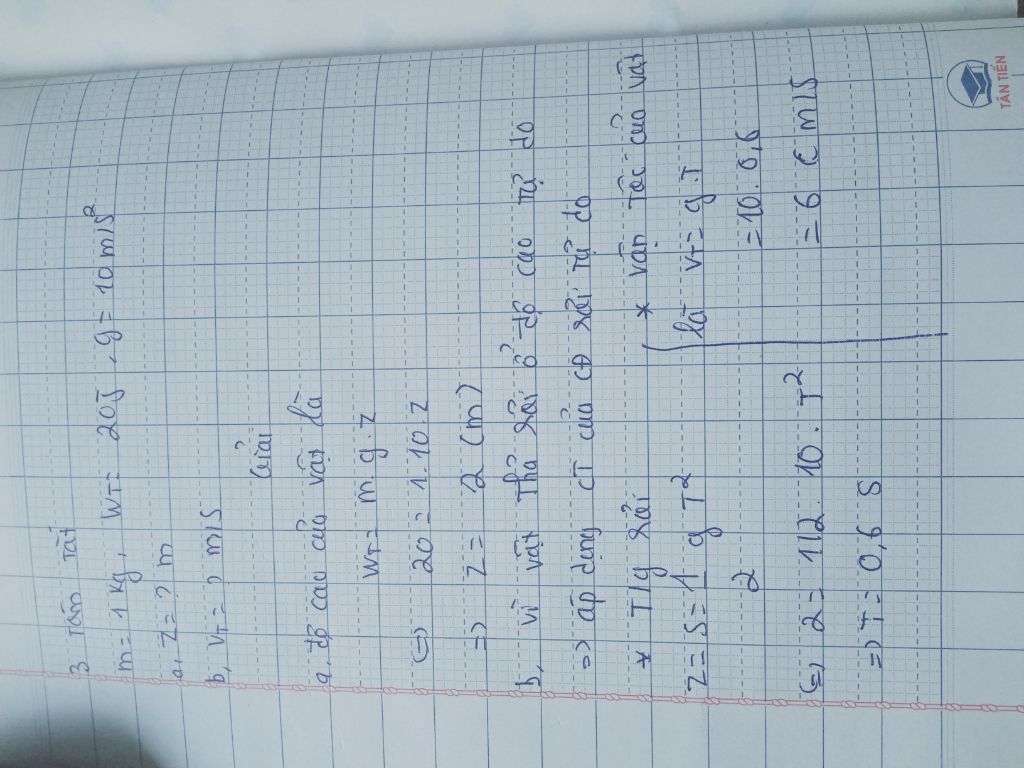 3 Tóm Tắt
m = 1 kg, WT = 20J, g = 10 m/s²
a, Z = ? m
b, VT = ? m/s
Giải
a, độ cao của vật là
WT = m.g.z
(=) 20 = 1.10.z
=) Z = 2 (m)
b, vì vật Thả rơi ở độ cao tự do
=) áp dụng CT của CĐ rơi tự do
* T/g rơi
Z = S = 1/2 g T²
(=) 2 = 1/2 . 10 . T²
=) T = 0,6 s
* vận Tốc của vật
là VT = g.T
= 10.0,6
= 6 (m/s
TÂN TIẾN